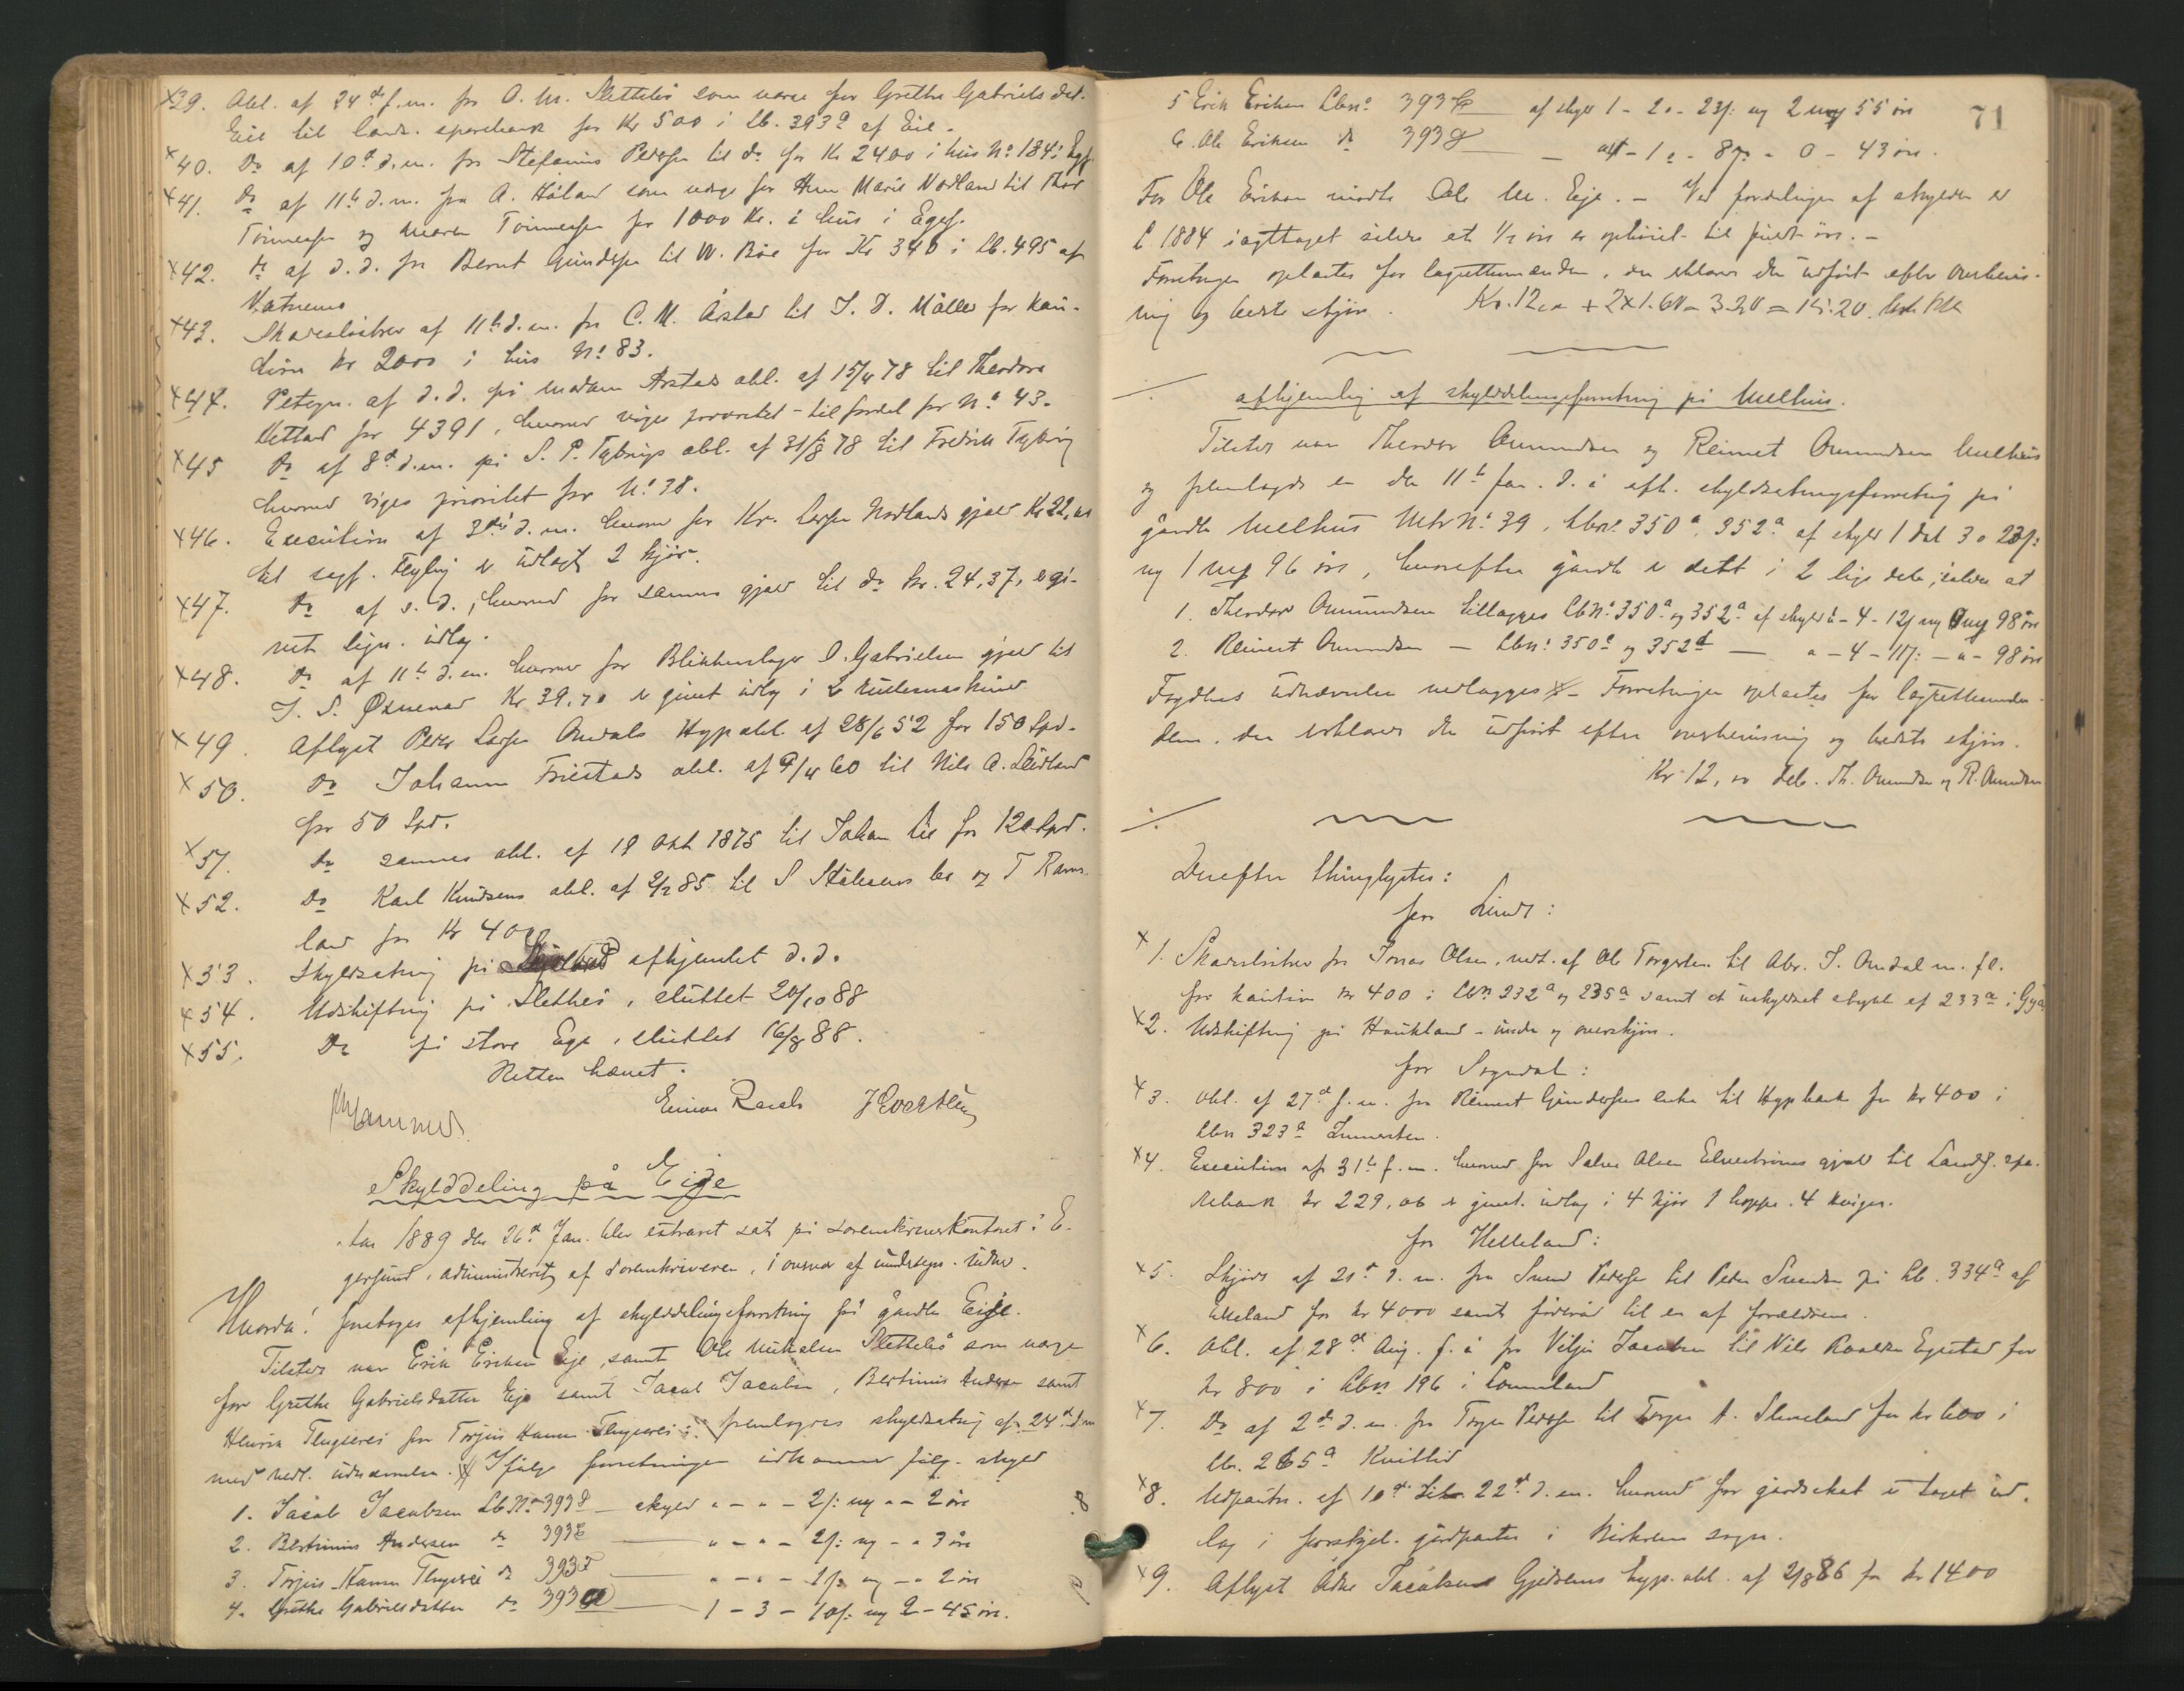 ×39. Obl. af 24de f.m. fra O. M. Slettebø som værge for Grethe Gabriels dat.
Eie til lands. sparebank for Kr 500 i Lb. 393a af Eie.
×40. Do af 10de d.m. fra Stefanus Peders. til do for Kr 2400 i hus No 184 i Eges.
×41. Do af 11te d.m. fra A. Håland som værge for Marie Nodland til Thor
Tønnesen og Maren Tønnesen for 1000 Kr. i hus i Eges.
×42. Do af d.d. fra Bernt Gundersen til W. Bøe for Kr 340 i Lb. 495 af
Vatnemo
×43. Skadesløsbrev af 11te d.m. fra C. M. Årstad til J. D. Møller for kau-
tion kr 2000 i hus No 83.
×44. Påtegn. af d.d. på madam Årstads obl. af 15/4 78 til Theodora
for 4391, hvorved viges prioritet til fordel for No 43.
×45 Do af 8de d.m. på S. P. obl. af 31/8 78 til Fredrik
hvorved viges prioritet for No 38.
×46. Execution af 3die d.m. hvorved for Kr. Larsen Nodlands gjæld Kr 22,
til sagf. Feyling er udlagt 2 kjør.
×47. Do af s.d., hvorved for samme gjæld til do kr. 24,37, er gi-
vet lign. udlæg.
×48. Do af 11te d.m. hvorved for Blikkenslager O. Gabrielsen gjæld til
J. S. Øxnevad Kr 39,70 er givet udlæg i 2
×49. Aflyst Peder Larsen Omdals Hyp obl. af 28/6 52 for 150 Spd.
×50. Do Johannes Friestads obl. af 9/4 60 til Nils A. Leidland
for 50 Spd.
×51. Do sammes obl. af 19 Okt 1875 til Johan Lie for 120 Spd.
×52. Do Karl Knudsens obl. af 2/2 85 til S Stålesens bo og T Rams-
land for Kr 400
×53. Skyldsætning på afhjemlet d.d.
×54. Udskiftning på Slettebø, sluttet 20/10 88
×55. Do på store Ege, sluttet 16/8 88.
Retten hævet.
Einar Rasch
Skylddeling på Eige
Aar 1889 den 26de Jan. blev extraret sat på sorenskriverkontoret i E-
gersund, administreret af sorenskriveren, i overvær af undertegn. vidner.
Hvorda! foretoges afhjemling af skylddelingsforretning på gården Eige.
Tilstede var Erik Eriksen Eige, samt Ole Mikalsen Slettebø som værge
for Grethe Gabrielsdatter Eige samt Jacob Jacobsen, Bertinius Andersen samt
Henrik for Torjus Hansen fremlagdes skyldsætning af 24de d.m
med vedl. udnævnelse. Ifølge forretningen udkommer følg. skyld
1. Jacob Jacobsen Lb No 393d — skyld " - " - 2/: ny " - 2 øre
2. Bertinius Andersen do 393e — " - " - 2/: ny - " 3 øre
3. Torjus Hansen do 393f — " - " - 1/: ny - " 2 øre
4. Grethe Gabrielsdatter do 393a — 1 - 3 - 10/: ny 2 - 45 øre.
71
5 Erik Eriksen Lbno 393b — af skyld 1 - 2 - 23/: ny 2 mrk 55 øre
6. Ole Eriksen do 393g — - 1 - 8/: - 0 - 43 øre.
For Ole Eriksen mødte Ole M. Eige. — Ved fordelingen af skylden er
L 1884 iagttaget således at 1/2 øre er opført til fuldt øre. —
Forretningen oplæstes for lagrettemændene, der erklærer den udført efter overbevis-
ning og bedste skjøn. Kr. 12 + 2×1.60 = 3.20 = 15.20.
afhjemling af skylddelingsforretning på Melhus.
Tilstede var Theodor Omundsen og Reinert Omundsen Melhus
og fremlagde en den 11te Jan. d. å afh. skyldsætningsforretning på
gården Melhus Mtr No 39, Lbno 350a, 352a af skyld 1 dal 3 o 23/:
ny 1 mrk 96 øre, hvorefter gården er delt i 2 lige dele, således at
1. Theodor Omundsen tillægges Lbno 350a og 352a af skyld " - 4 - 12/ ny 0 mrk 98 øre
2. Reinert Omundsen — Lbno 350c og 352d — " - 4 - 11/: - " - 98 øre
Fogdens udnævnelse vedlægges — Forretningen oplæstes for lagrettemæn-
dene, der erklærer den udført efter overbevisning og bedste skjøn.
Kr 12,00 betalt. Th. Omundsen og R. Omundsen
Derefter thinglystes:
for Lund:
×1. Skadesløsbrev fra Jonas Olsen, vedt. af Ole Torgersen til Abr. J. Omdal m. fl.
for kaution kr 400 i Lbn 232a og 235a samt et uskyldsat stykke af 233a i Gya
×2. Udskiftning på Haukland - under og overskjøn.
for Sogndal:
×3. Obl. af 27de f.m. fra Reinert Gundersens enke til Hypbank for kr 400 i
Lbn 323a
×4. Execution af 31te f.m. hvorved for Salve Olsen gjæld til Lands. spa-
rebank kr 229,06 er givet udlæg i 4 kjør 1 hoppe. 4 kviger.
for Helleland:
×5. Skjøde af 21de d.m. fra Svend Pedersen til Peder Svendsen på Lb. 334a af
for kr 4000 samt føderåd til en af forældrene.
×6. Obl. af 28de Aug. f. å fra Jacobsen til Nils Egestad for
kr 800 i Lbn 196 i
×7. Do af 2de d.m. fra Torger Pedersen til Torger A. for kr 600 i
Lb. 265a Kvitlid
×8. Udpantn. af 10de til 22de d.m. hvorved for gårdsskat er taget ud-
læg i forskjel. gårdparter i sogn.
×9. Aflyst Jacobsens hyp. obl. af 2/8 86 for kr 1400